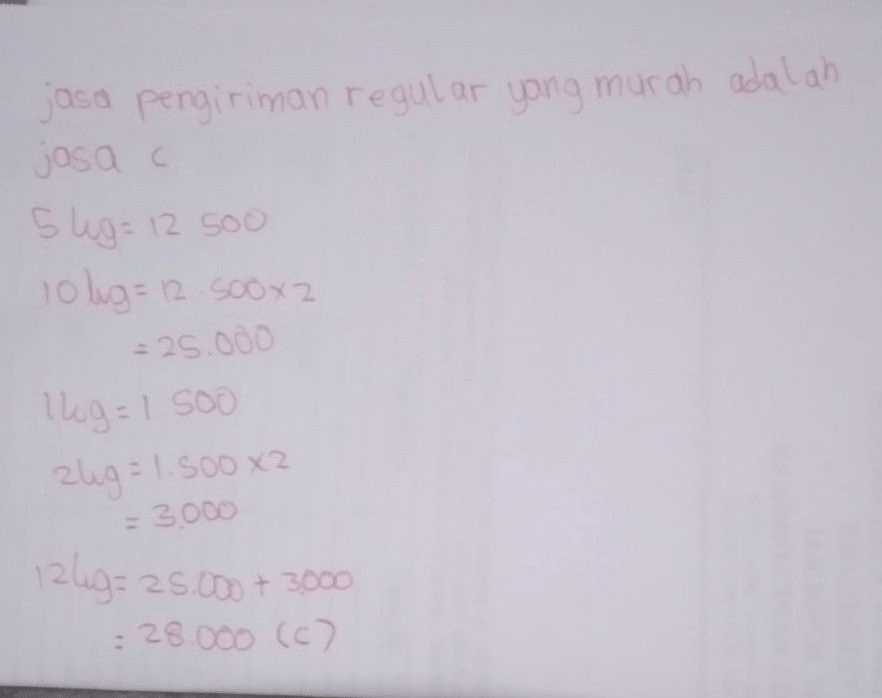 jasa pengiriman regular yang murah adalah
jasa c
5 kg = 12.500
10 kg = 12.500 x 2
= 25.000
1 kg = 1.500
2 kg = 1.500 x 2
= 3.000
12 kg = 25.000 + 3.000
= 28.000 (c)